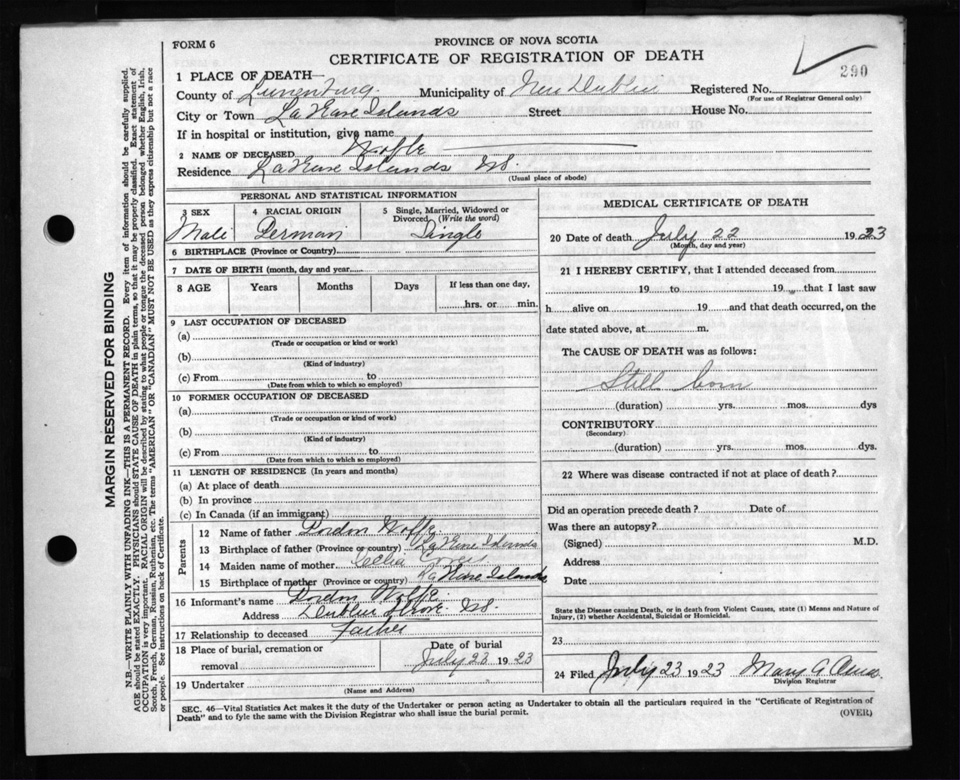 FORM 6
PROVINCE OF NOVA SCOTIA
CERTIFICATE OF REGISTRATION OF DEATH
290
1 PLACE OF DEATH—
County of Lunenburg Municipality of New Dublin Registered No.
(For use of Registrar General only)
City or Town LaHave Islands Street House No.
If in hospital or institution, give name
2 NAME OF DECEASED Wolfe
Residence LaHave Islands NS.
(Usual place of abode)
PERSONAL AND STATISTICAL INFORMATION
3 SEX Male
4 RACIAL ORIGIN German
5 Single, Married, Widowed or Divorced (Write the word) Single
6 BIRTHPLACE (Province or Country)
7 DATE OF BIRTH (month, day and year
8 AGE Years Months Days If less than one day,
hrs. or min.
9 LAST OCCUPATION OF DECEASED
(a)
(Trade or occupation or kind or work)
(b)
(Kind of industry)
(c) From to
(Date from which to which so employed)
10 FORMER OCCUPATION OF DECEASED
(a)
(Trade or occupation or kind of work)
(b)
(Kind of industry)
(c) From to
(Date from which to which so employed)
11 LENGTH OF RESIDENCE (In years and months)
(a) At place of death
(b) In province
(c) In Canada (if an immigrant)
Parents
12 Name of father Gordon Wolfe
13 Birthplace of father (Province or country) LaHave Islands
14 Maiden name of mother Celia
15 Birthplace of mother (Province or country) LaHave Islands
16 Informant's name Gordon Wolfe
Address Dublin Shore NS.
17 Relationship to deceased Father
18 Place of burial, cremation or removal
Date of burial
July 23 1923
19 Undertaker
(Name and Address)
MEDICAL CERTIFICATE OF DEATH
20 Date of death July 22 1923
(Month, day and year)
21 I HEREBY CERTIFY, that I attended deceased from
19 to 19 that I last saw
h alive on 19 and that death occurred, on the
date stated above, at m.
The CAUSE OF DEATH was as follows:
Still born
(duration) yrs. mos. dys
CONTRIBUTORY
(Secondary)
(duration) yrs. mos. dys.
22 Where was disease contracted if not at place of death?
Did an operation precede death? Date of
Was there an autopsy?
(Signed) M.D.
Address
Date
State the Disease causing Death, or in death from Violent Causes, state (1) Means and Nature of
Injury, (2) whether Accidental, Suicidal or Homicidal.
23
24 Filed July 23 1923 Mary A
Division Registrar
SEC. 46—Vital Statistics Act makes it the duty of the Undertaker or person acting as Undertaker to obtain all the particulars required in the "Certificate of Registration of
Death" and to fyle the same with the Division Registrar who shall issue the burial permit.
(OVER)
MARGIN RESERVED FOR BINDING
N.B.—WRITE PLAINLY WITH UNFADING INK—THIS IS A PERMANENT RECORD. Every item of information should be carefully supplied.
AGE should be stated EXACTLY. PHYSICIANS should STATE CAUSE OF DEATH in plain terms, so that it may be properly classified. Exact statement of
OCCUPATION is very important. RACIAL ORIGIN will be described by stating to what people or tongue the deceased person belonged whether English, Irish,
Scotch, French, German, Russian, Ruthenian, etc. The terms "AMERICAN" OR "CANADIAN" MUST NOT BE USED as they express citizenship but not a race
or people. See instructions on back of Certificate.